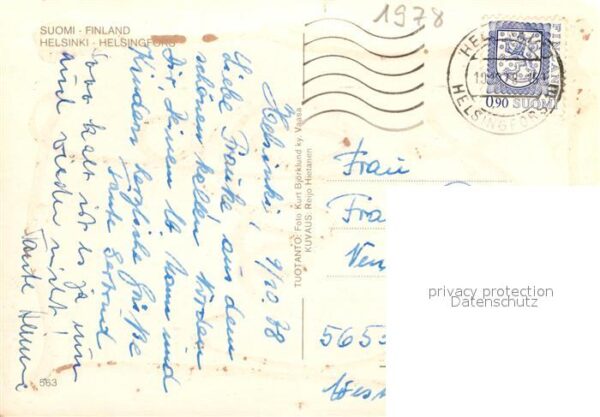 SUOMI - FINLAND
HELSINKI - HELSINGFORS
1978
HELSINKI
HELSINGFORS
FINLAND
0,90 SUOMI
Helsinki, 9/10 78
Liebe Frauke aus dem
schönen kalten Norden
Dir, Deinen lb. Mann und
Kindern herzliche Grüße
Tante Gertrud
Sooo kalt ist es ja nun
auch wieder nicht!
Tante
TUOTANTO: Foto Kurt Björklund ky. Vaasa
KUVAUS: Reijo Hietanen
Frau
Fra
5653
Wes
privacy protection
Datenschutz
563